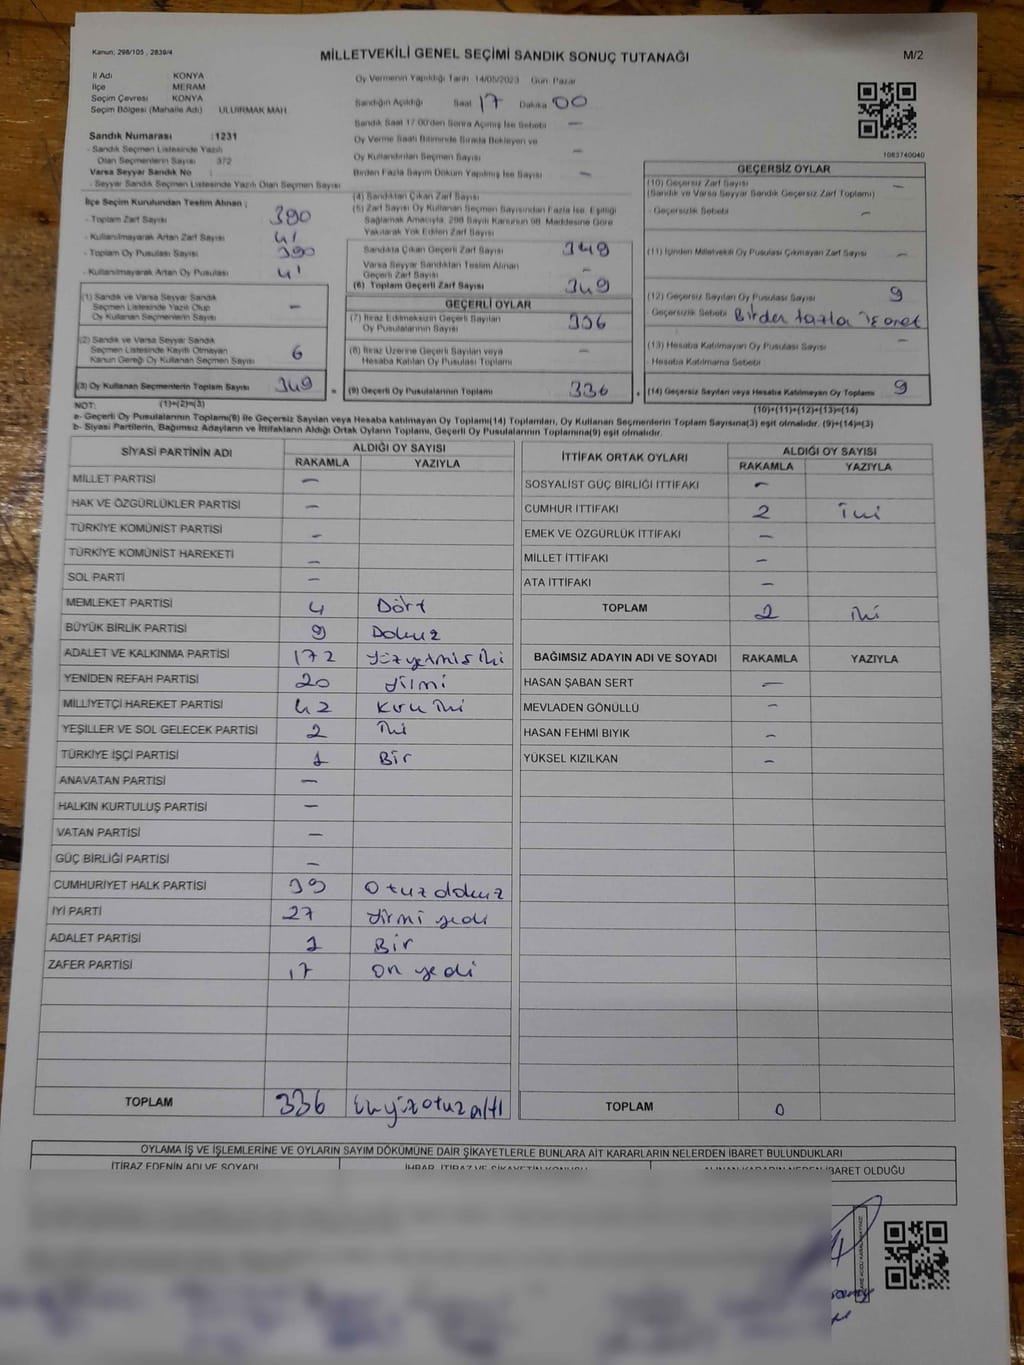 Kanun; 298/105 , 2839/4
MİLLETVEKİLİ GENEL SEÇİMİ SANDIK SONUÇ TUTANAĞI
M/2
İl Adı : KONYA
İlçe : MERAM
Seçim Çevresi : KONYA
Seçim Bölgesi (Mahalle Adı) : ULUIRMAK MAH.
Oy Vermenin Yapıldığı Tarih 14/05/2023 Gün Pazar
Sandığın Açıldığı Saat 17 Dakika 00
Sandık Saat 17:00'den Sonra Açılmış İse Sebebi —
Oy Verme Saati Bitiminde Sırada Bekleyen ve
Oy Kullandırılan Seçmen Sayısı —
Birden Fazla Sayım Döküm Yapılmış İse Sayısı —
Sandık Numarası :1231
- Sandık Seçmen Listesinde Yazılı
Olan Seçmenlerin Sayısı 372
Varsa Seyyar Sandık No :
- Seyyar Sandık Seçmen Listesinde Yazılı Olan Seçmen Sayısı :
1083740040
İlçe Seçim Kurulundan Teslim Alınan ;
- Toplam Zarf Sayısı : 390
- Kullanılmayarak Artan Zarf Sayısı : 41
- Toplam Oy Pusulası Sayısı : 390
- Kullanılmayarak Artan Oy Pusulası : 41
(1) Sandık ve Varsa Seyyar Sandık
Seçmen Listesinde Yazılı Olup
Oy Kullanan Seçmenlerin Sayısı : —
(2) Sandık ve Varsa Seyyar Sandık
Seçmen Listesinde Kayıtlı Olmayan
Kanun Gereği Oy Kullanan Seçmen Sayısı : 6
(3) Oy Kullanan Seçmenlerin Toplam Sayısı : 349
(4) Sandıktan Çıkan Zarf Sayısı :
(5) Zarf Sayısı Oy Kullanan Seçmen Sayısından Fazla İse, Eşitliği
Sağlamak Amacıyla, 298 Sayılı Kanunun 98. Maddesine Göre
Yakılarak Yok Edilen Zarf Sayısı :
Sandıkta Çıkan Geçerli Zarf Sayısı : 349
Varsa Seyyar Sandıktan Teslim Alınan
Geçerli Zarf Sayısı : —
(6) Toplam Geçerli Zarf Sayısı : 349
GEÇERLİ OYLAR
(7) İtiraz Edilmeksizin Geçerli Sayılan
Oy Pusulalarının Sayısı : 336
(8) İtiraz Üzerine Geçerli Sayılan veya
Hesaba Katılan Oy Pusulası Toplamı : —
= (9) Geçerli Oy Pusulalarının Toplamı : 336
GEÇERSİZ OYLAR
(10) Geçersiz Zarf Sayısı : —
(Sandık ve Varsa Seyyar Sandık Geçersiz Zarf Toplamı)
- Geçersizlik Sebebi : —
(11) İçinden Milletvekili Oy Pusulası Çıkmayan Zarf Sayısı : —
(12) Geçersiz Sayılan Oy Pusulası Sayısı : 9
- Geçersizlik Sebebi : Birden fazla işaret
(13) Hesaba Katılmayan Oy Pusulası Sayısı : —
- Hesaba Katılmama Sebebi :
+ (14) Geçersiz Sayılan veya Hesaba Katılmayan Oy Toplamı : 9
NOT: (1)+(2)=(3)
(10)+(11)+(12)+(13)=(14)
a- Geçerli Oy Pusulalarının Toplamı(9) ile Geçersiz Sayılan veya Hesaba katılmayan Oy Toplamı(14) Toplamları, Oy Kullanan Seçmenlerin Toplam Sayısına(3) eşit olmalıdır. (9)+(14)=(3)
b- Siyasi Partilerin, Bağımsız Adayların ve İttifakların Aldığı Ortak Oyların Toplamı, Geçerli Oy Pusulalarının Toplamına(9) eşit olmalıdır.
SİYASİ PARTİNİN ADI ALDIĞI OY SAYISI
RAKAMLA YAZIYLA
MİLLET PARTİSİ —
HAK VE ÖZGÜRLÜKLER PARTİSİ —
TÜRKİYE KOMÜNİST PARTİSİ —
TÜRKİYE KOMÜNİST HAREKETİ —
SOL PARTİ —
MEMLEKET PARTİSİ 4 Dört
BÜYÜK BİRLİK PARTİSİ 9 Dokuz
ADALET VE KALKINMA PARTİSİ 172 yüzyetmiş iki
YENİDEN REFAH PARTİSİ 20 yirmi
MİLLİYETÇİ HAREKET PARTİSİ 42 kırk iki
YEŞİLLER VE SOL GELECEK PARTİSİ 2 iki
TÜRKİYE İŞÇİ PARTİSİ 1 Bir
ANAVATAN PARTİSİ —
HALKIN KURTULUŞ PARTİSİ —
VATAN PARTİSİ —
GÜÇ BİRLİĞİ PARTİSİ —
CUMHURİYET HALK PARTİSİ 39 otuz dokuz
İYİ PARTİ 27 yirmi yedi
ADALET PARTİSİ 1 Bir
ZAFER PARTİSİ 17 on yedi
TOPLAM 336 üçyüzotuzaltı
İTTİFAK ORTAK OYLARI ALDIĞI OY SAYISI
RAKAMLA YAZIYLA
SOSYALİST GÜÇ BİRLİĞİ İTTİFAKI —
CUMHUR İTTİFAKI 2 iki
EMEK VE ÖZGÜRLÜK İTTİFAKI —
MİLLET İTTİFAKI —
ATA İTTİFAKI —
TOPLAM 2 iki
BAĞIMSIZ ADAYIN ADI VE SOYADI RAKAMLA YAZIYLA
HASAN ŞABAN SERT —
MEVLADEN GÖNÜLLÜ —
HASAN FEHMİ BIYIK —
YÜKSEL KIZILKAN —
TOPLAM 0
OYLAMA İŞ VE İŞLEMLERİNE VE OYLARIN SAYIM DÖKÜMÜNE DAİR ŞİKAYETLERLE BUNLARA AİT KARARLARIN NELERDEN İBARET BULUNDUKLARI
İTİRAZ EDENİN ADI VE SOYADI İHBAR, İTİRAZ VE ŞİKAYETİN KONUSU ALINAN KARARIN NEDEN İBARET OLDUĞU